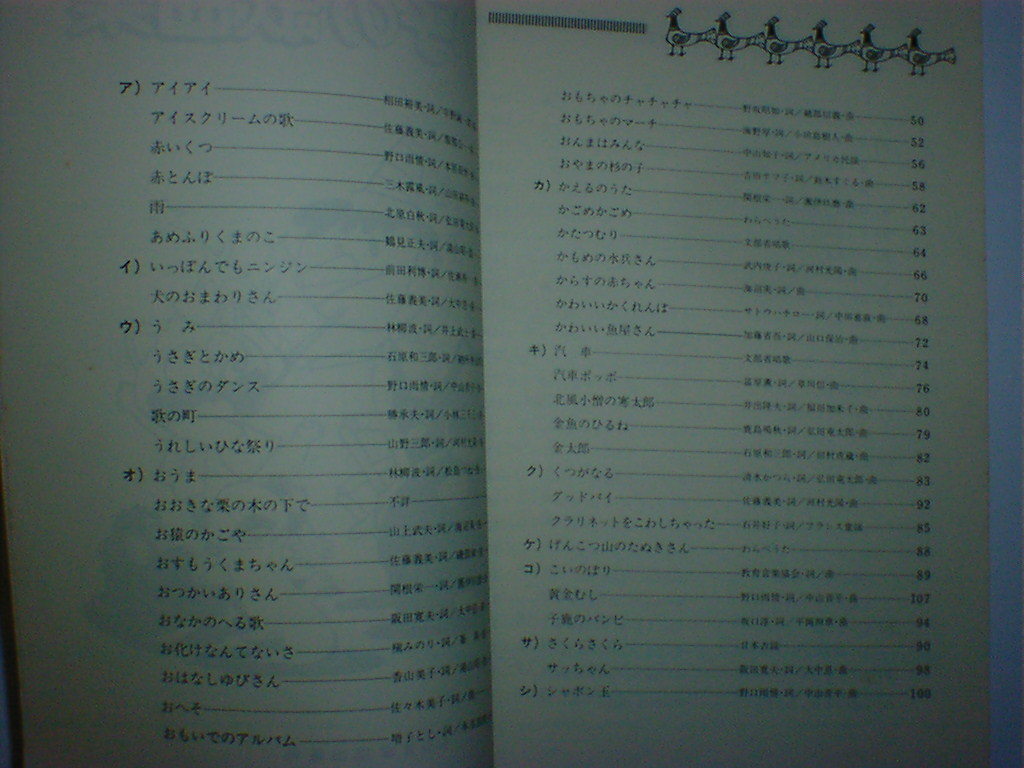 ア) アイアイ 相田裕美・詞/
アイスクリームの歌 佐藤義美・詞/服部公一
赤いくつ 野口雨情・詞/本居長世
赤とんぼ 三木露風・詞/山田耕筰
雨 北原白秋・詞/弘田龍太郎
あめふりくまのこ 鶴見正夫・詞/湯山昭
イ) いっぽんでもニンジン 前田利博・詞/佐瀬寿一
犬のおまわりさん 佐藤義美・詞/大中恩
ウ) う み 林柳波・詞/井上武士
うさぎとかめ 石原和三郎・詞/
うさぎのダンス 野口雨情・詞/中山晋平
歌の町 勝承夫・詞/小林三千三
うれしいひな祭り 山野三郎・詞/河村光陽
オ) おうま 林柳波・詞/松島つね
おおきな栗の木の下で 不詳
お猿のかごや 山上武夫・詞/海沼實
おすもうくまちゃん 佐藤義美・詞/磯部俶
おつかいありさん 関根栄一・詞/團伊玖磨
おなかのへる歌 阪田寛夫・詞/大中恩
お化けなんてないさ 槇みのり・詞/峯 陽
おはなしゆびさん 香山美子・詞/湯山昭
おへそ 佐々木美子・詞/曲
おもいでのアルバム 増子とし・詞/本多鉄麿
おもちゃのチャチャチャ 野坂昭如・詞/越部信義・曲 50
おもちゃのマーチ 海野厚・詞/小田島樹人・曲 52
おんまはみんな 中山知子・詞/アメリカ民謡 56
おやまの杉の子 吉田テフ子・詞/佐々木すぐる・曲 58
カ) かえるのうた 関根栄一・詞/團伊玖磨・曲 62
かごめかごめ わらべうた 63
かたつむり 文部省唱歌 64
かもめの水兵さん 武内俊子・詞/河村光陽・曲 66
からすの赤ちゃん 海沼実・詞/曲 70
かわいいかくれんぼ サトウハチロー・詞/中田喜直・曲 68
かわいい魚屋さん 加藤省吾・詞/山口保治・曲 72
キ) 汽 車 文部省唱歌 74
汽車ポッポ 富原薫・詞/草川信・曲 76
北風小僧の寒太郎 井出隆夫・詞/福田和禾子・曲 80
金魚のひるね 鹿島鳴秋・詞/弘田龍太郎・曲 79
金太郎 石原和三郎・詞/田村虎蔵・曲 82
ク) くつがなる 清水かつら・詞/弘田龍太郎・曲 83
グッドバイ 佐藤義美・詞/河村光陽・曲 92
クラリネットをこわしちゃった 石井好子・詞/フランス童謡 85
ケ) げんこつ山のたぬきさん わらべうた 88
コ) こいのぼり 教育音楽協会・詞/曲 89
黄金むし 野口雨情・詞/中山晋平・曲 107
子鹿のバンビ 坂口淳・詞/平岡照章・曲 94
サ) さくらさくら 日本古謡 90
サッちゃん 阪田寛夫・詞/大中恩・曲 98
シ) シャボン玉 野口雨情・詞/中山晋平・曲 100